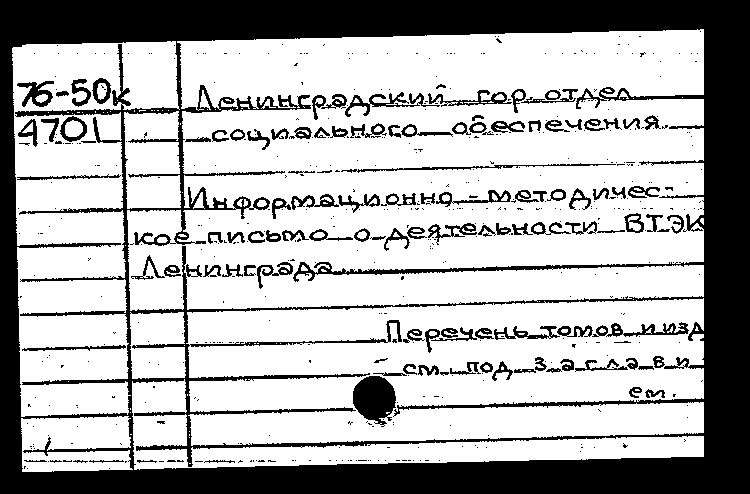 76-50к
4701
Ленинградский гор. отдел
социального обеспечения
Информационно-методичес-
кое письмо о деятельности ВТЭК
Ленинграда...
Перечень томов и изд
см. под заглави-
ем.